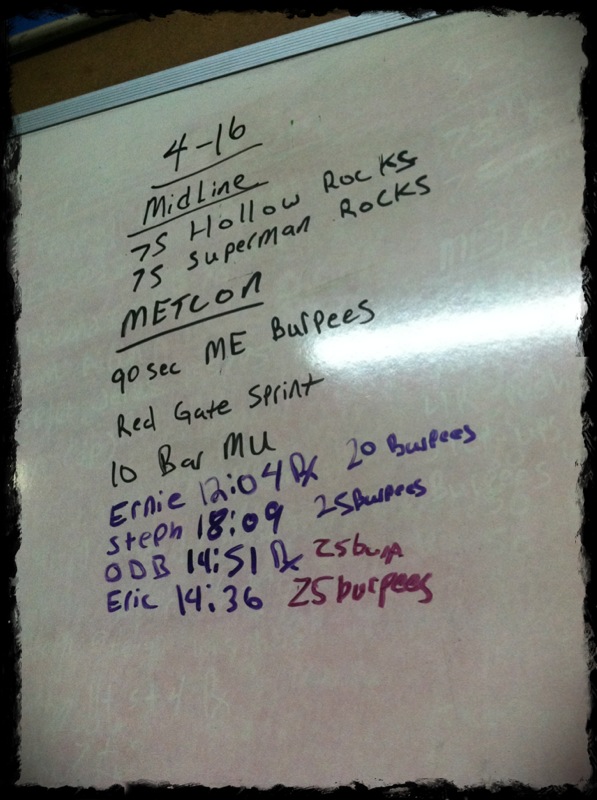 4-16
Midline
75 Hollow Rocks
75 Superman Rocks
METCON
90sec ME Burpees
Red Gate Sprint
10 Bar MU
Ernie 12:04 Rx 20 Burpees
Steph 18:09 25Burpees
ODB 14:51 Rx 25burp
Eric 14:36 25burpees